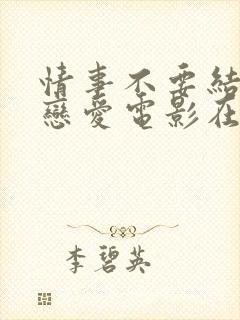 情事不要結
戀愛電影在
李碧英